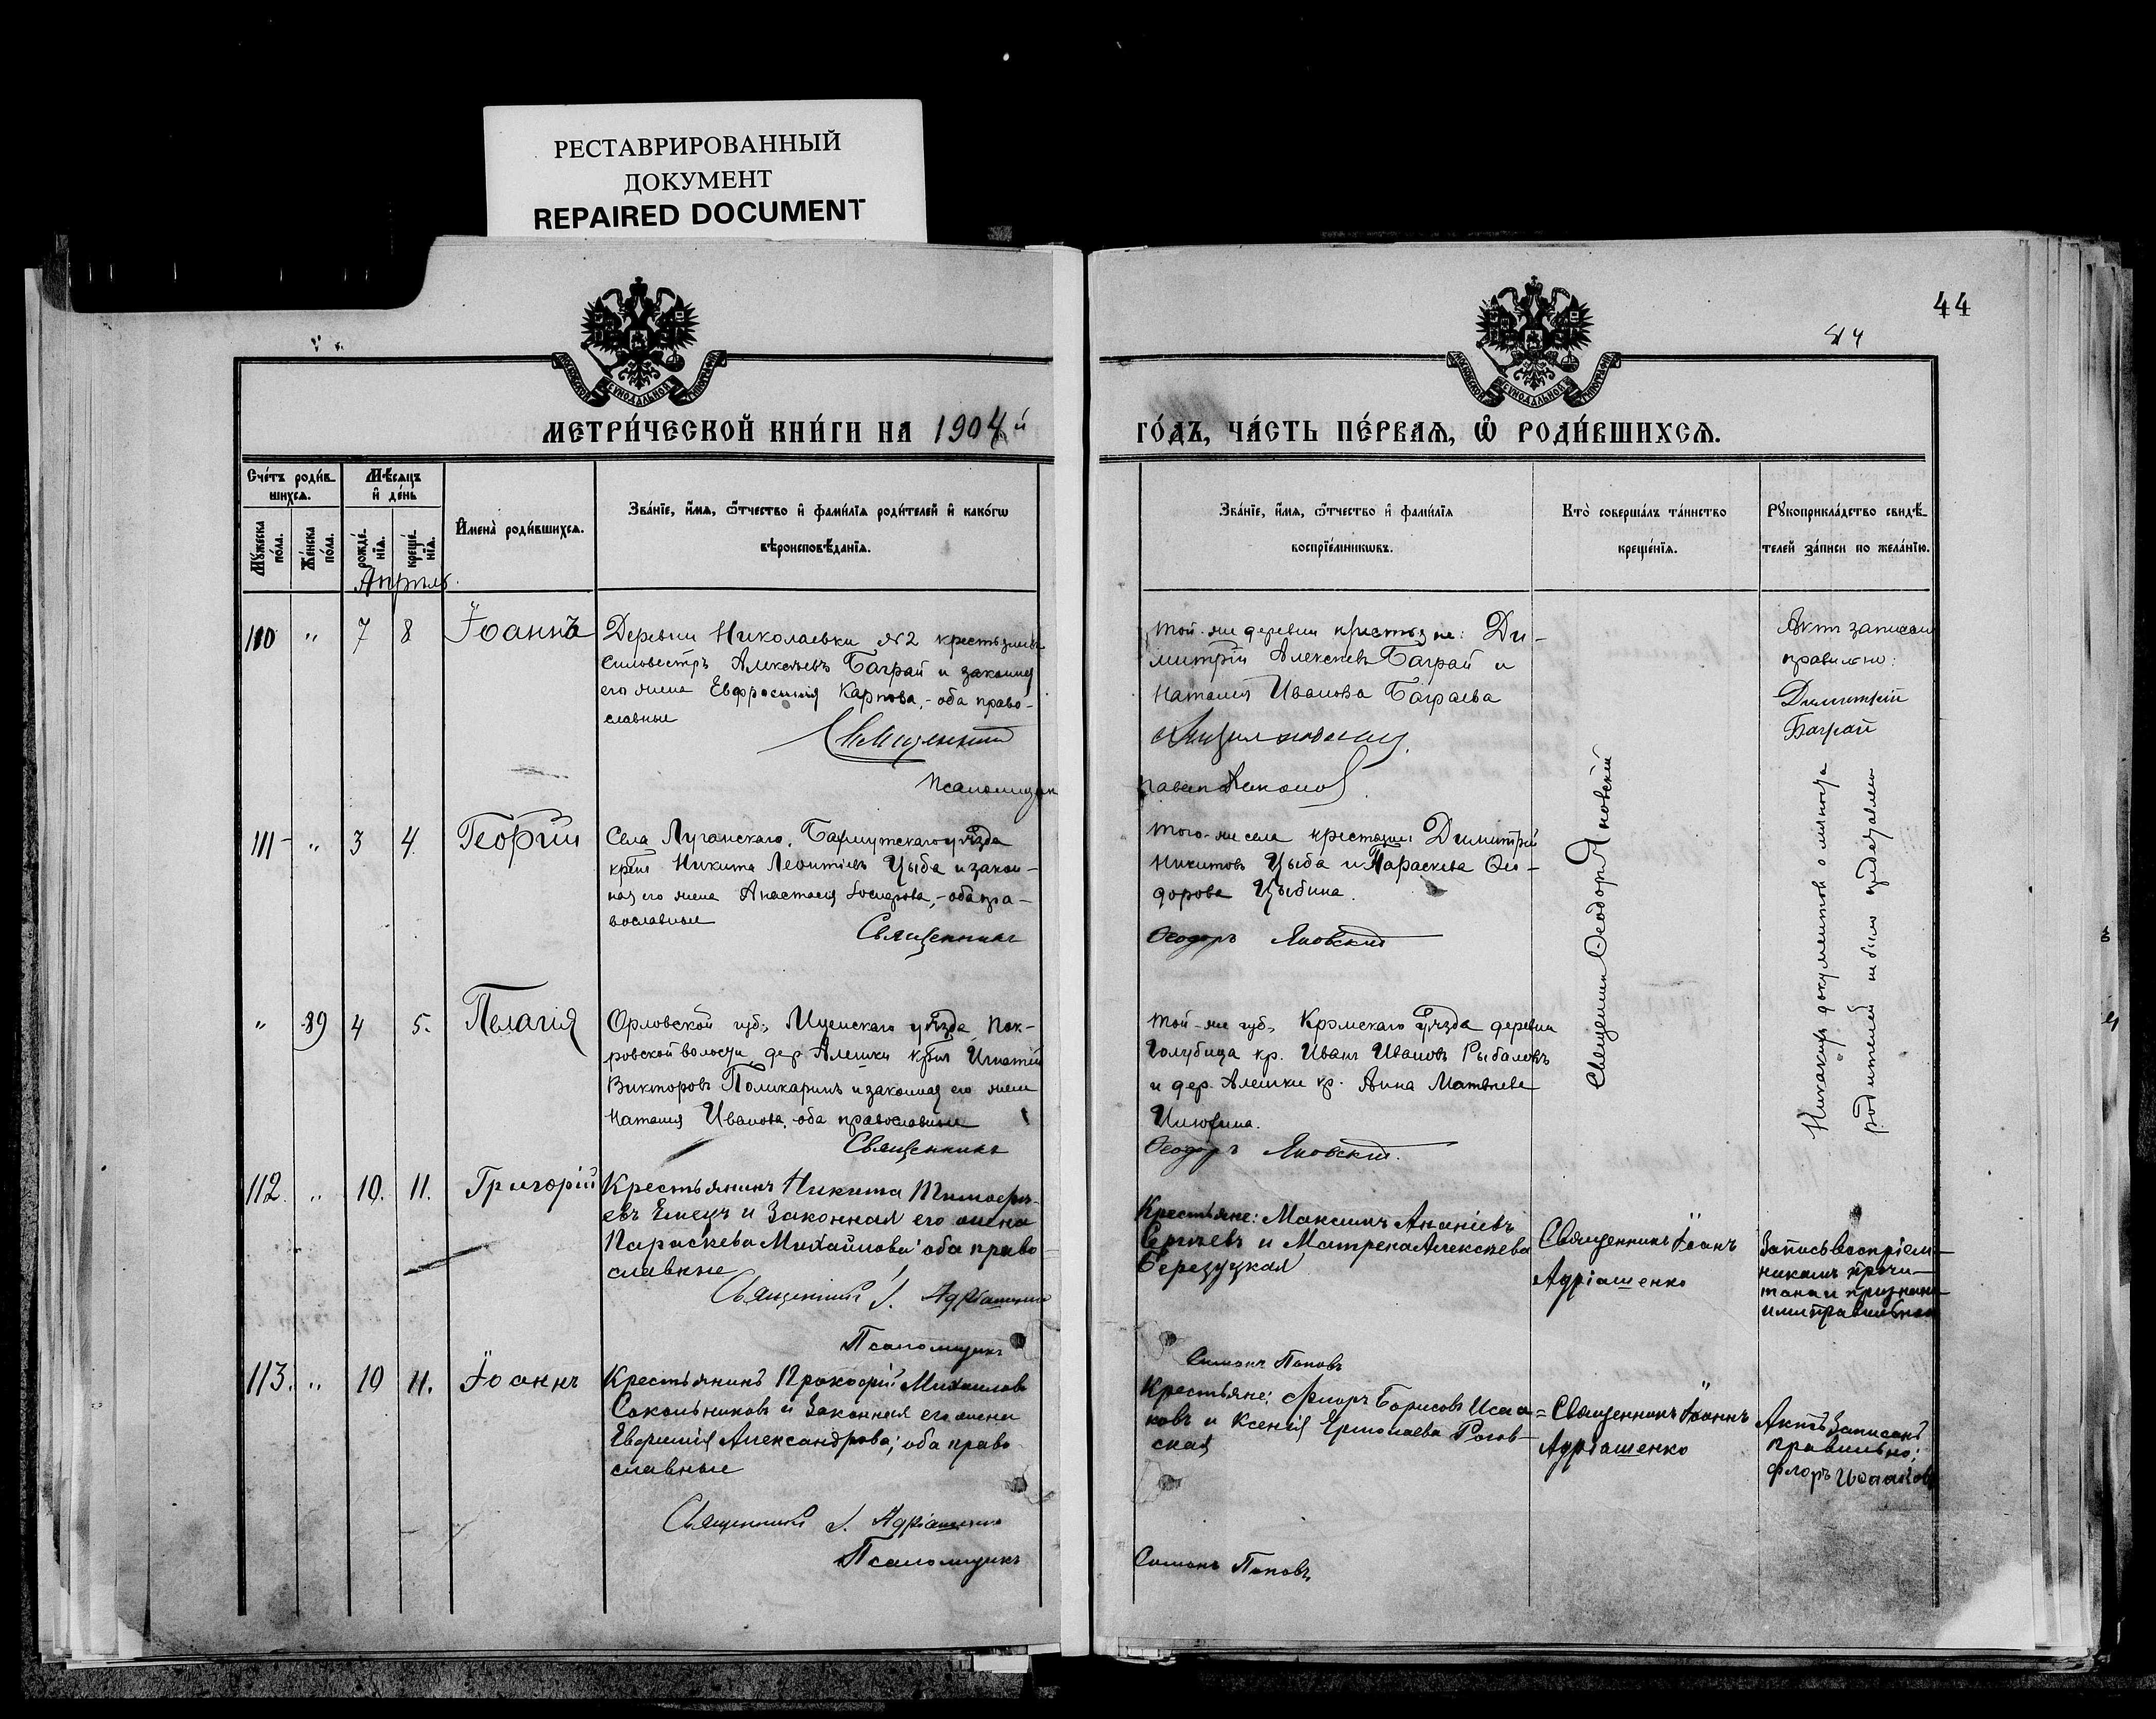 РЕСТАВРИРОВАННЫЙ
ДОКУМЕНТ
REPAIRED DOCUMENT
44
МЕТРИ́ЧЕСКОЙ КНИ́ГИ НА 1904й
ГО́ДЪ, ЧА́СТЬ ПЕ́РВАЯ, Ѡ РОДИ́ВШИХСЯ.
Сче́тъ роди́в-
шихся.
Мѣсяцъ
и де́нь
Мꙋжеска
по́ла.
Же́нска
по́ла.
рожде́-
нїя.
креще́-
нїя.
Имена̀ роди́вшихся.
Зва́нїе, и́мя, ѻ́тчество и фами́лїя роди́телей и како́гѡ
вѣроисповѣ́данїя.
Зва́нїе, и́мя, ѻ́тчество и фами́лїя
воспрїе́мникѡвъ.
Кто̀ соверша́лъ та́инство
креще́нїя.
Рꙋкоприкла́дство свидѣ́-
телей за́писи по жела́нїю.
Апрѣль.
110 " 7 8 Іоаннъ
Деревни Николаевки №2 крестьянинъ
Силовестръ Алексѣевъ Баграй и законная
его жена Евфросинія Карпова,- оба право-
славные
Священникъ
Псаломщик
Той-же деревни крестьяне: Ди-
митрій Алексѣевъ Баграй и
Наталія Иванова Баграева
Актъ записан
правильно:
Димитрій
Баграй
111 " 3 4. Георгій
Села Луганскаго, Бахмутскаго уѣзда
кртн Никита Леонтіевъ Цыба и закон-
ная его жена Анастасія, - оба пра-
вославные
Священникъ
Того-же села крестьяне Димитрій
Никитовъ Цыба и Параскева Си-
дорова Цыбина.
Ѳеодоръ Яновскій
Священникъ Ѳеодоръ Яновскій
Никакихъ документовъ о личности
родителей не было представлено
" 89 4 5. Пелагія
Орловской губ., Мценскаго уѣзда, Пок-
ровской волости, дер. Алешки крт. Игнатій
Викторовъ Поликарпинъ и законная его жена
Наталія Иванова, оба православные
Священникъ
Той-же губ., Кромскаго уѣзда деревни
Голубица кр. Иванъ Ивановъ Рыбаловъ
и дер. Алешки кр. Анна Матвѣева
Илюхина.
Ѳеодоръ Яновскій.
112. " 10. 11. Григорій
Крестьянинъ Никита Тимофѣ-
евъ Емецъ и Законная его жена
Параскева Михайлова оба право-
славные
Священникъ І. Адріашенко
Псаломщикъ
Крестьяне: Максимъ Ананіевъ
и Матрена Алексѣева
Березуцкая
Симонъ Поповъ
Священникъ Іоанъ
Адріашенко
Запись воспріем-
никамъ прочи-
тана и признана
ими правильной
113. " 10 11. Іоаннъ
Крестьянинъ Прокофій Михаиловъ
Сокольниковъ и Законная его жена
Евфимія Александрова; оба право-
славные
Священникъ І. Адріашенко
Псаломщикъ
Крестьяне: Флоръ Борисовъ Исаа-
ковъ и Ксенія Ермолаева Рогов-
ская
Симонъ Поповъ.
Священникъ Іоаннъ
Адріашенко
Актъ Записанъ
правильно:
Флоръ Исааковъ